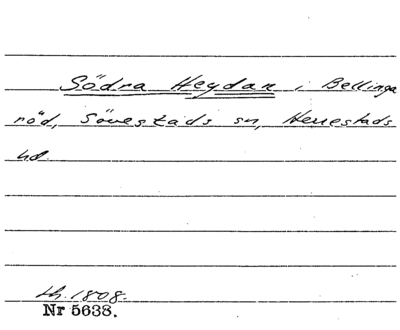 Södra Heydan i Bellinga
röd, Sövestads sn, Herrestads
hd.
Lh. 1808.
Nr 5638.